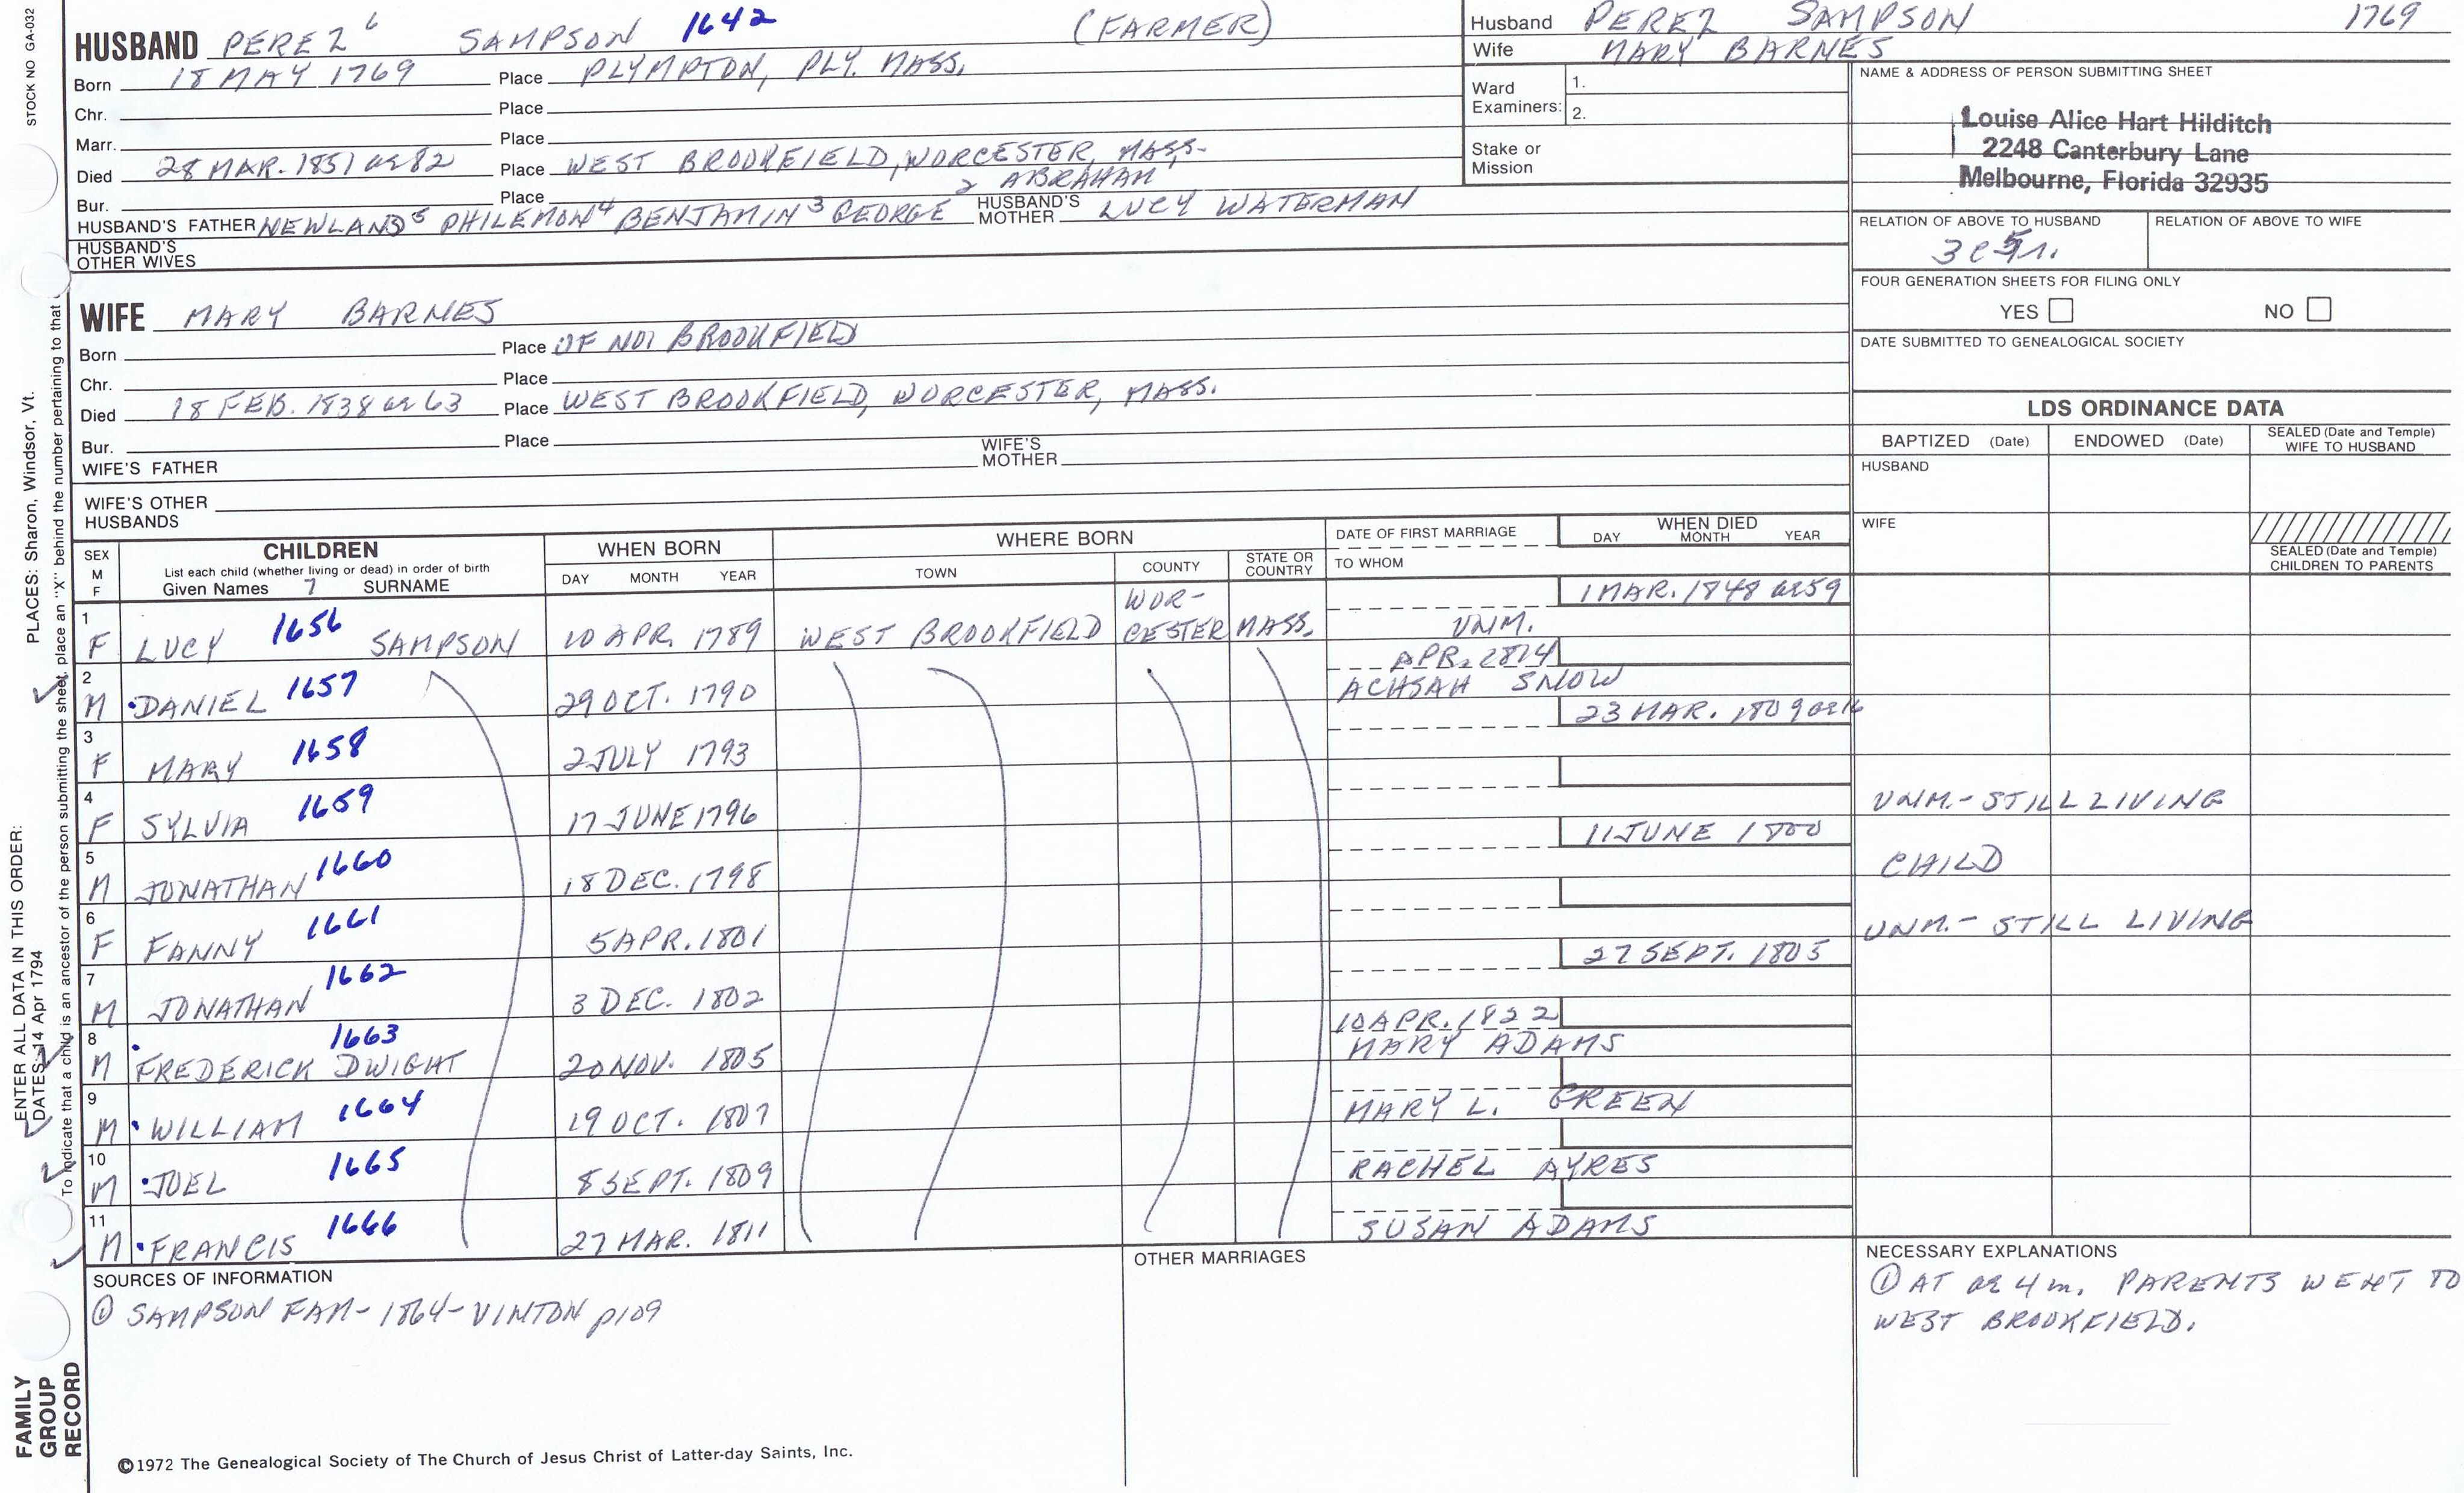 STOCK NO GA-032
HUSBAND PEREZ 6 SAMPSON 1642 (FARMER)
Born 18 MAY 1769 Place PLYMPTON, PLY. MASS.
Chr. Place
Marr. Place
Died 28 MAR. 1851 ae 82 Place WEST BROOKFIELD, WORCESTER, MASS.
Bur. Place
HUSBAND'S FATHER NEWLAND 5 PHILEMON 4 BENJAMIN 3 GEORGE 2 ABRAHAM 1 HUSBAND'S MOTHER LUCY WATERMAN
HUSBAND'S OTHER WIVES
WIFE MARY BARNES
Born Place OF NO. BROOKFIELD
Chr. Place
Died 18 FEB. 1838 ae 63 Place WEST BROOKFIELD, WORCESTER, MASS.
Bur. Place
WIFE'S FATHER WIFE'S MOTHER
WIFE'S OTHER HUSBANDS
Husband PEREZ SAMPSON 1769
Wife MARY BARNES
Ward Examiners: 1.
2.
Stake or Mission
NAME & ADDRESS OF PERSON SUBMITTING SHEET
Louise Alice Hart Hilditch
2248 Canterbury Lane
Melbourne, Florida 32935
RELATION OF ABOVE TO HUSBAND RELATION OF ABOVE TO WIFE
3 C 5 r.
FOUR GENERATION SHEETS FOR FILING ONLY
YES NO
DATE SUBMITTED TO GENEALOGICAL SOCIETY
LDS ORDINANCE DATA
BAPTIZED (Date) ENDOWED (Date) SEALED (Date and Temple) WIFE TO HUSBAND
HUSBAND
WIFE
SEALED (Date and Temple) CHILDREN TO PARENTS
SEX M F
CHILDREN
List each child (whether living or dead) in order of birth
Given Names 7 SURNAME
WHEN BORN
DAY MONTH YEAR
WHERE BORN
TOWN COUNTY STATE OR COUNTRY
DATE OF FIRST MARRIAGE
TO WHOM
WHEN DIED
DAY MONTH YEAR
1 F LUCY 1656 SAMPSON 10 APR. 1789 WEST BROOKFIELD WOR-CESTER MASS. UNM. 1 MAR. 1848 ae 59
2 M DANIEL 1657 29 OCT. 1790 APR. 2 1814 ACHSAH SNOW
3 F MARY 1658 2 JULY 1793 23 MAR. 1809 ae 16
4 F SYLVIA 1659 17 JUNE 1796 UNM. - STILL LIVING
5 M JONATHAN 1660 18 DEC. 1798 11 JUNE 1800 CHILD
6 F FANNY 1661 5 APR. 1801 UNM. - STILL LIVING
7 M JONATHAN 1662 3 DEC. 1802 27 SEPT. 1805
8 M FREDERICK DWIGHT 1663 20 NOV. 1805 10 APR. 1822 MARY ADAMS
9 M WILLIAM 1664 19 OCT. 1807 MARY L. GREEN
10 M JOEL 1665 8 SEPT. 1809 RACHEL AYRES
11 M FRANCIS 1666 27 MAR. 1811 SUSAN ADAMS
SOURCES OF INFORMATION
① SAMPSON FAM - 1864 - VINTON p109
OTHER MARRIAGES
NECESSARY EXPLANATIONS
① AT ae 4 m. PARENTS WENT TO
WEST BROOKFIELD.
©1972 The Genealogical Society of The Church of Jesus Christ of Latter-day Saints, Inc.
FAMILY GROUP RECORD
ENTER ALL DATA IN THIS ORDER:
DATES: 14 Apr 1794
PLACES: Sharon, Windsor, Vt.
To indicate that a child is an ancestor of the person submitting the sheet, place an "X" behind the number pertaining to that